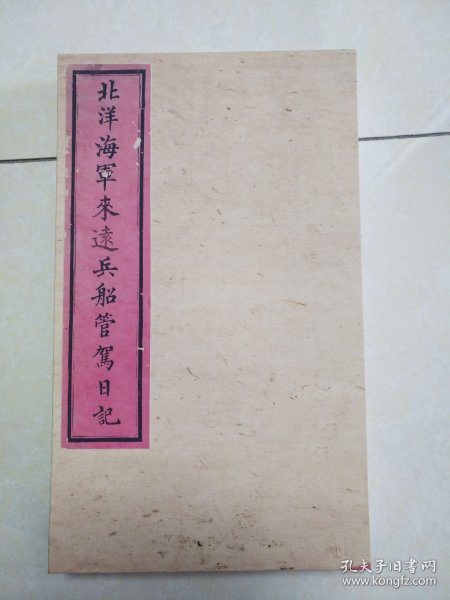 北洋海軍來遠兵船管駕日記
孔夫子旧书网
www.kongfz.com